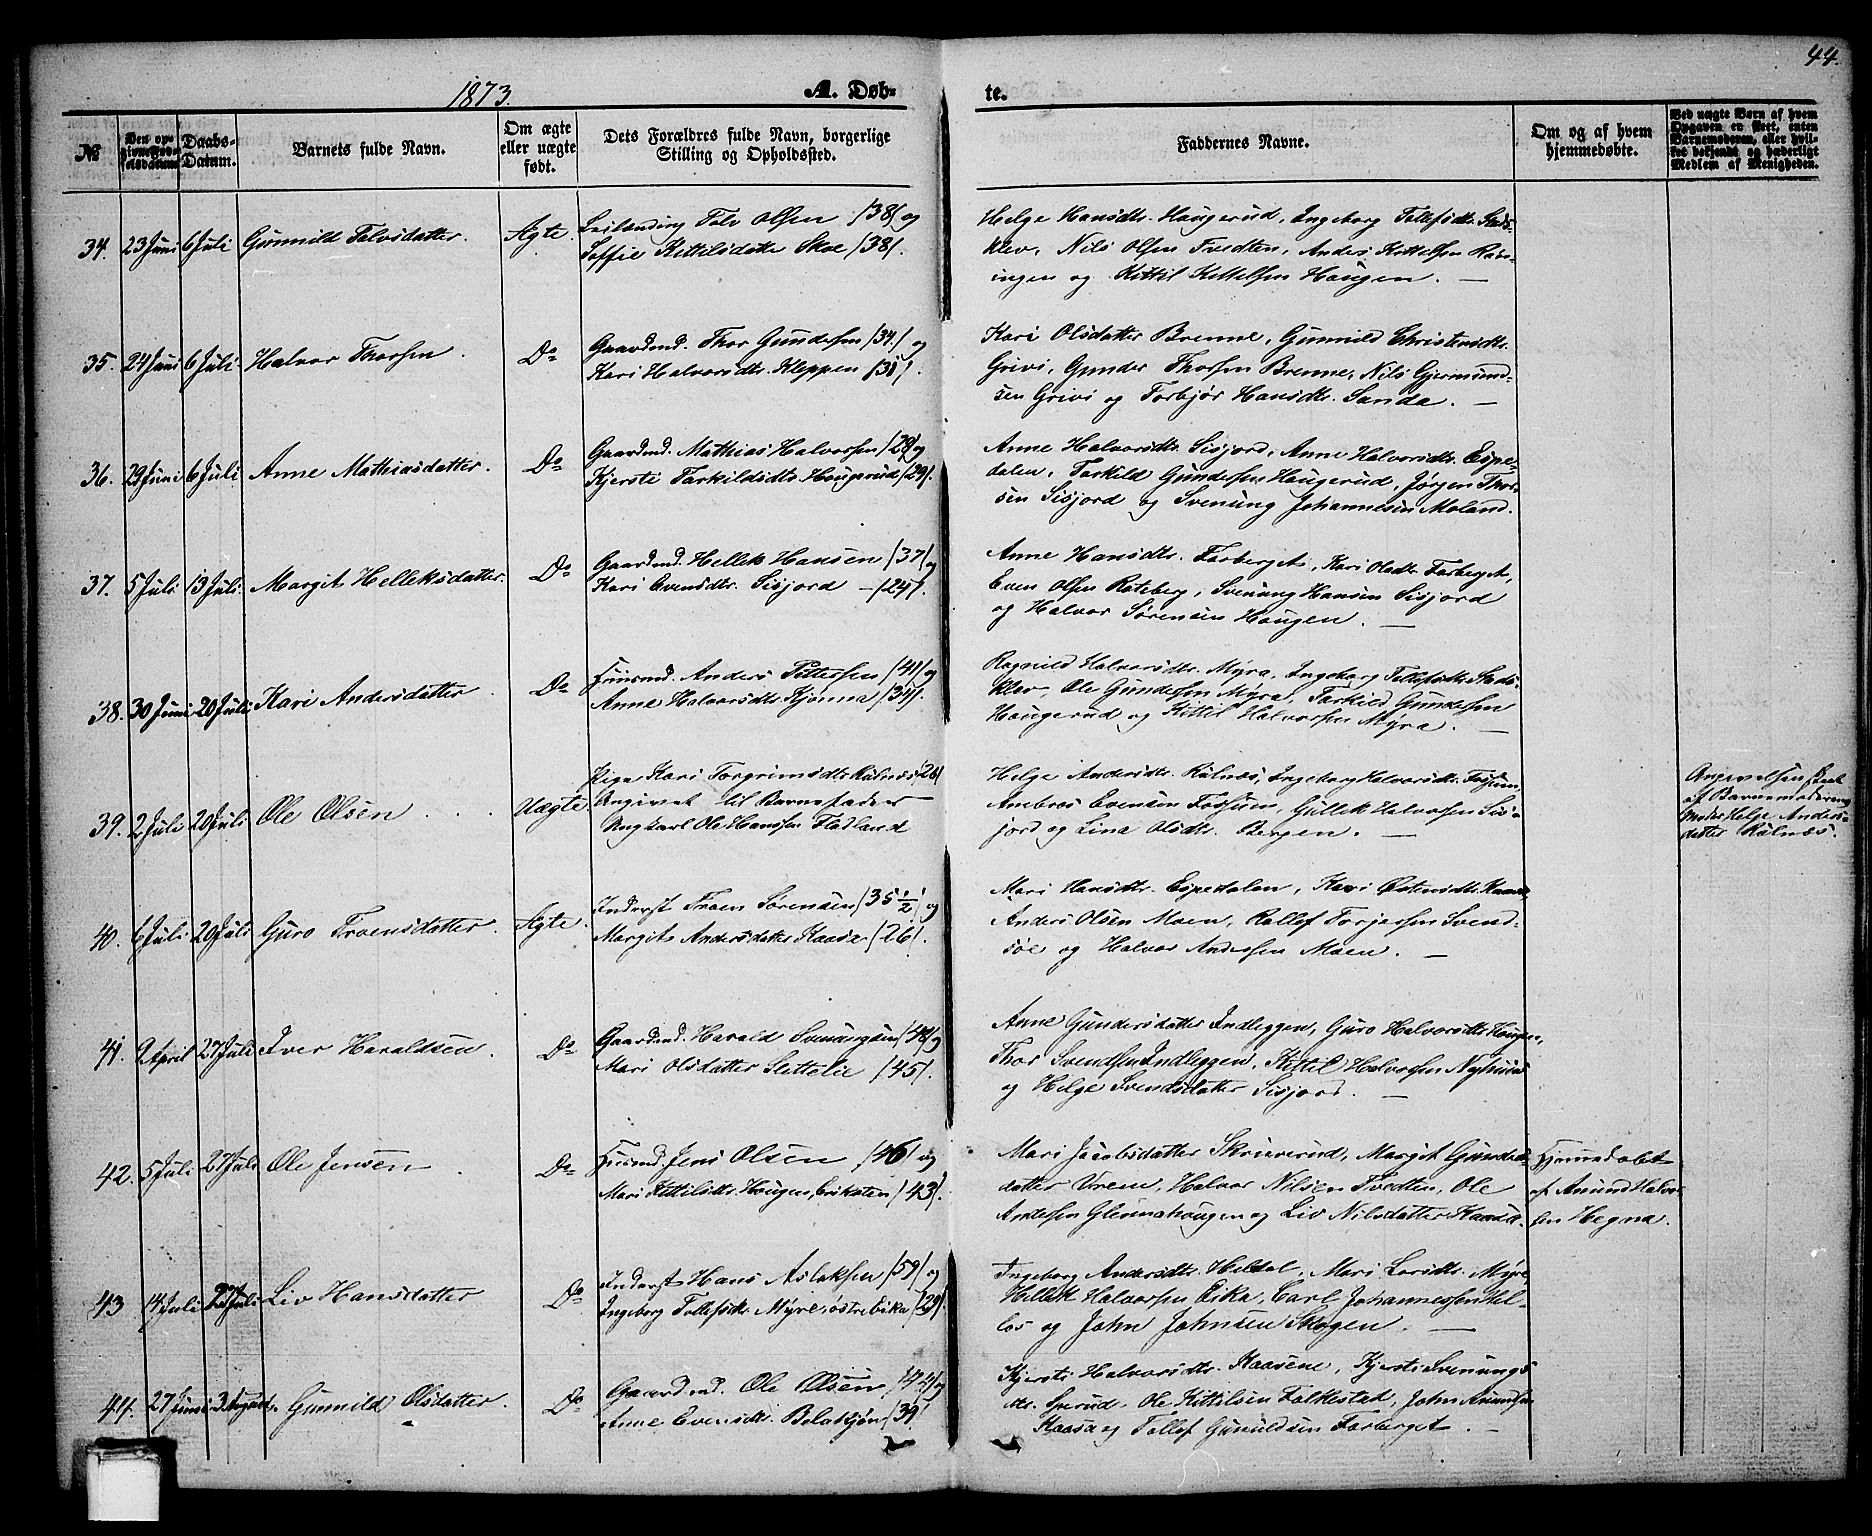 44.
1873.
A. Døb-
te.
No
Den op-
givne Fød-
selsdatum.
Daabs-
Datum.
Barnets fulde Navn.
Om ægte
eller uægte
født.
Dets Forældres fulde Navn, borgerlige
Stilling og Opholdssted.
Faddernes Navne.
Om og af hvem
hjemmedøbte.
Ved uægte Børn af hvem
Opgaven er skeet, enten
Barnemoderen, eller hvil-
ket bekjendt og hæderligt
Medlem af Menigheden.
34. 23 Juni 6 Juli Gunnild Tolvsdatter. Ægte.
Leilending Tolv Olsen /38/ og
Soffie Kittilsdatter Skoe /38/.
Helge Hansdtr. Haugerud, Ingeborg Tollefsdtr. Stads-
klev, Nils Olsen Tvedten, Anders Kittelsen Røn-
ingen og Kittil Kittelsen Haugen. —
35. 24 Juni 6 Juli. Halvor Thorsen. Do
Gaardmd. Thor Gundersen /34/ og
Kari Halvorsdtr. Kleppen /31/.
Kari Olsdatter Brenne, Gunnild Christensdtr.
Grivi, Gunder Thorsen Brenne, Nils Gjermund-
sen Grivi og Torbjør Hansdtr. Sanda. —
36. 29 Juni 6 Juli Anne Mathiasdatter. Do
Gaardmd. Mathias Halvorsen /28/ og
Kjersti Tarkildsdtr. Haugerud /29/.
Anne Halvorsdtr. Sisjord, Anne Halvorsdtr. Espe-
dalen, Tarkild Gundersen Haugerud, Jørgen Thor-
sen Sisjord og Svenung Johannesen Moland.
37. 5 Juli 13 Juli. Margit Helleksdatter. Do
Gaardmd. Hellek Hansen /37/ og
Kari Evensdtr. Sisjord — /24/.
Anne Hansdtr. Farberget, Kari Olsdtr. Farberget,
Even Olsen Roteberg, Svenung Hansen Sisjord
og Halvor Sørensen Haugen. —
38. 30 Juni 20 Juli Kari Andersdatter. Do
Huusmd. Anders Pettersen /41/ og
Anne Halvorsdtr. Kjønna /34/.
Ragnild Halvorsdtr. Myra, Ingeborg Tollefsdtr. Stads-
klev, Ole Gundersen Myra, Tarkild Gundersen
Haugerud og Kittil Halvorsen Myra. —
39. 2 Juli 20 Juli Ole Olsen. Uægte
Pige Kari Torgrimsdtr. Rålnæs /26/
Angivet til Barnefader
Ungkarl Ole Hansen Fladland
Helge Andersdtr. Rålnæs, Ingeborg Halvorsdtr. Fossum,
Ambros Evensen Fossum, Gullek Halvorsen Sis-
jord og Lina Olsdtr. Bergen. —
Angivelsen skeet
af Barnemoderens
Moder Helge Anders-
datter Rålnæs.
40. 6 Juli 20 Juli Guro Troensdatter. Ægte.
Inderst Troen Sørensen /35 1/2/ og
Margit Andersdatter Kaasa /26/.
Mari Hansdtr. Espedalen, Kari Østensdtr. Kaasa
Anders Olsen Moen, Rollef Torjersen Svend-
søe og Halvor Andersen Moen. —
41. 9 April 27 Juli Iver Haraldsen. Do
Gaardmd. Harald Svenungsen /48/ og
Mari Olsdatter Slettelie /45/.
Anne Gundersdatter Indleggen, Guro Halvorsdtr. Haugen,
Thor Svendsen Indleggen, Kittil Halvorsen Nyhuus
og Helge Svendsdatter Sisjord. —
42. 5 Juli 27 Juli Ole Jensen. Do
Huusmd. Jens Olsen /46/ og
Mari Kittilsdtr. Haugen, Eriksten /43/.
Mari Jacobsdatter Skrivenrud, Margit Gunders-
datter Vreim, Halvor Nilsen Tvedten, Ole
Andersen Glennahaugen og Liv Nilsdatter Kaasa.
Hjemmedøbt
af Anund Halvor-
sen Hegna.
43 14 Juli 27 Juli Liv Hansdatter Do
Inderst Hans Aslaksen /59/ og
Ingeborg Tollefsdtr. Myre, østre Eika /29/.
Ingeborg Andersdtr. Heldal, Mari Larsdtr. Myre
Hellek Halvorsen Eika, Carl Johannessen Hel-
los og John Johnsen Skogen. —
44. 27 Juni 3 August. Gunnild Olsdatter. Do
Gaardmd. Ole Olsen /42/ og
Anne Evensdtr. Bolaskjøn /39/
Kjersti Halvorsdtr. Kaasene, Kjersti Svenungs-
dtr. Sperud, Ole Kittilsen Folkestad, John Anundsen
Kaasa og Tollef Gunuldsen Farberget. —